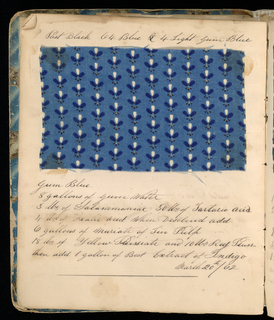 Blk 64 Blue & 4 Light Gum Blue
Gum Blue
8 gallons of Gum Water
3 lbs of Salammoniac 30 lbs of Tartaric acid
4 lbs of and when disolved add
6 gallons of Muriate of Tin Pulp
15 lbs of Yellow Prussiate and 10 lbs Red Pruss.
then add 1 gallon of Best Extract of Indigo
March 20th /62